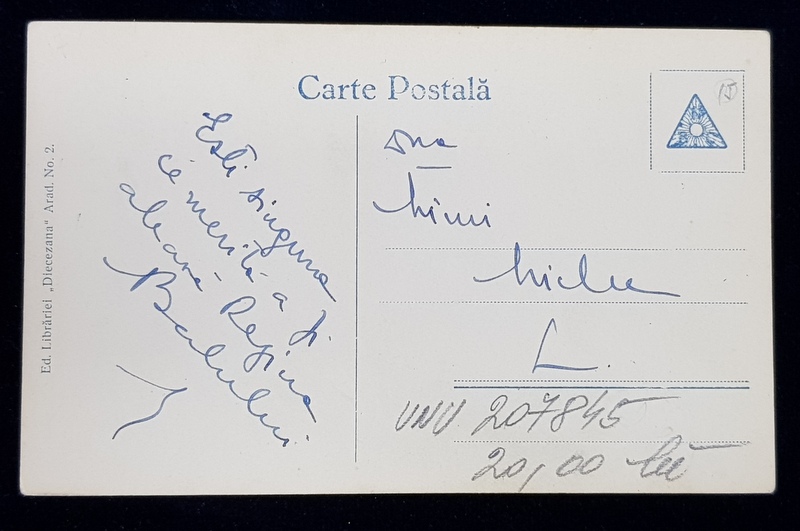 Carte Postală
15
Ești singura
ce merită a fi
aleasă Regina
Balului
D-na
Mimi
Miclea
L.
VNU 207845
20,00 lei
Ed. Librăriei „Diecezana" Arad. No. 2.